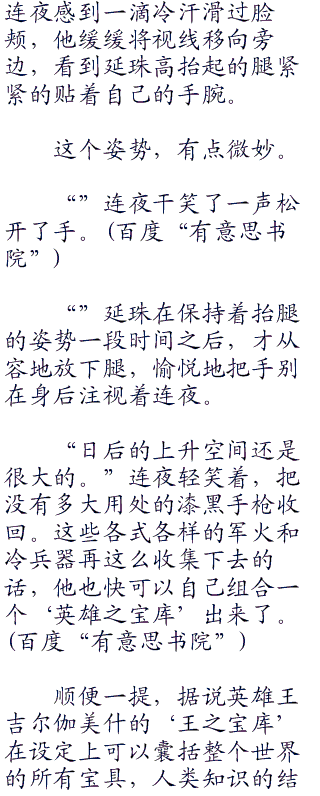 连夜感到一滴冷汗滑过脸
颊，他缓缓将视线移向旁
边，看到延珠高抬起的腿紧
紧的贴着自己的手腕。
这个姿势，有点微妙。
“”连夜干笑了一声松
开了手。(百度“有意思书
院”)
“”延珠在保持着抬腿
的姿势一段时间之后，才从
容地放下腿，愉悦地把手别
在身后注视着连夜。
“日后的上升空间还是
很大的。”连夜轻笑着，把
没有多大用处的漆黑手枪收
回。这些各式各样的军火和
冷兵器再这么收集下去的
话，他也快可以自己组合一
个‘英雄之宝库’出来了。
(百度“有意思书院”)
顺便一提，据说英雄王
吉尔伽美什的‘王之宝库’
在设定上可以囊括整个世界
的所有宝具，人类知识的结